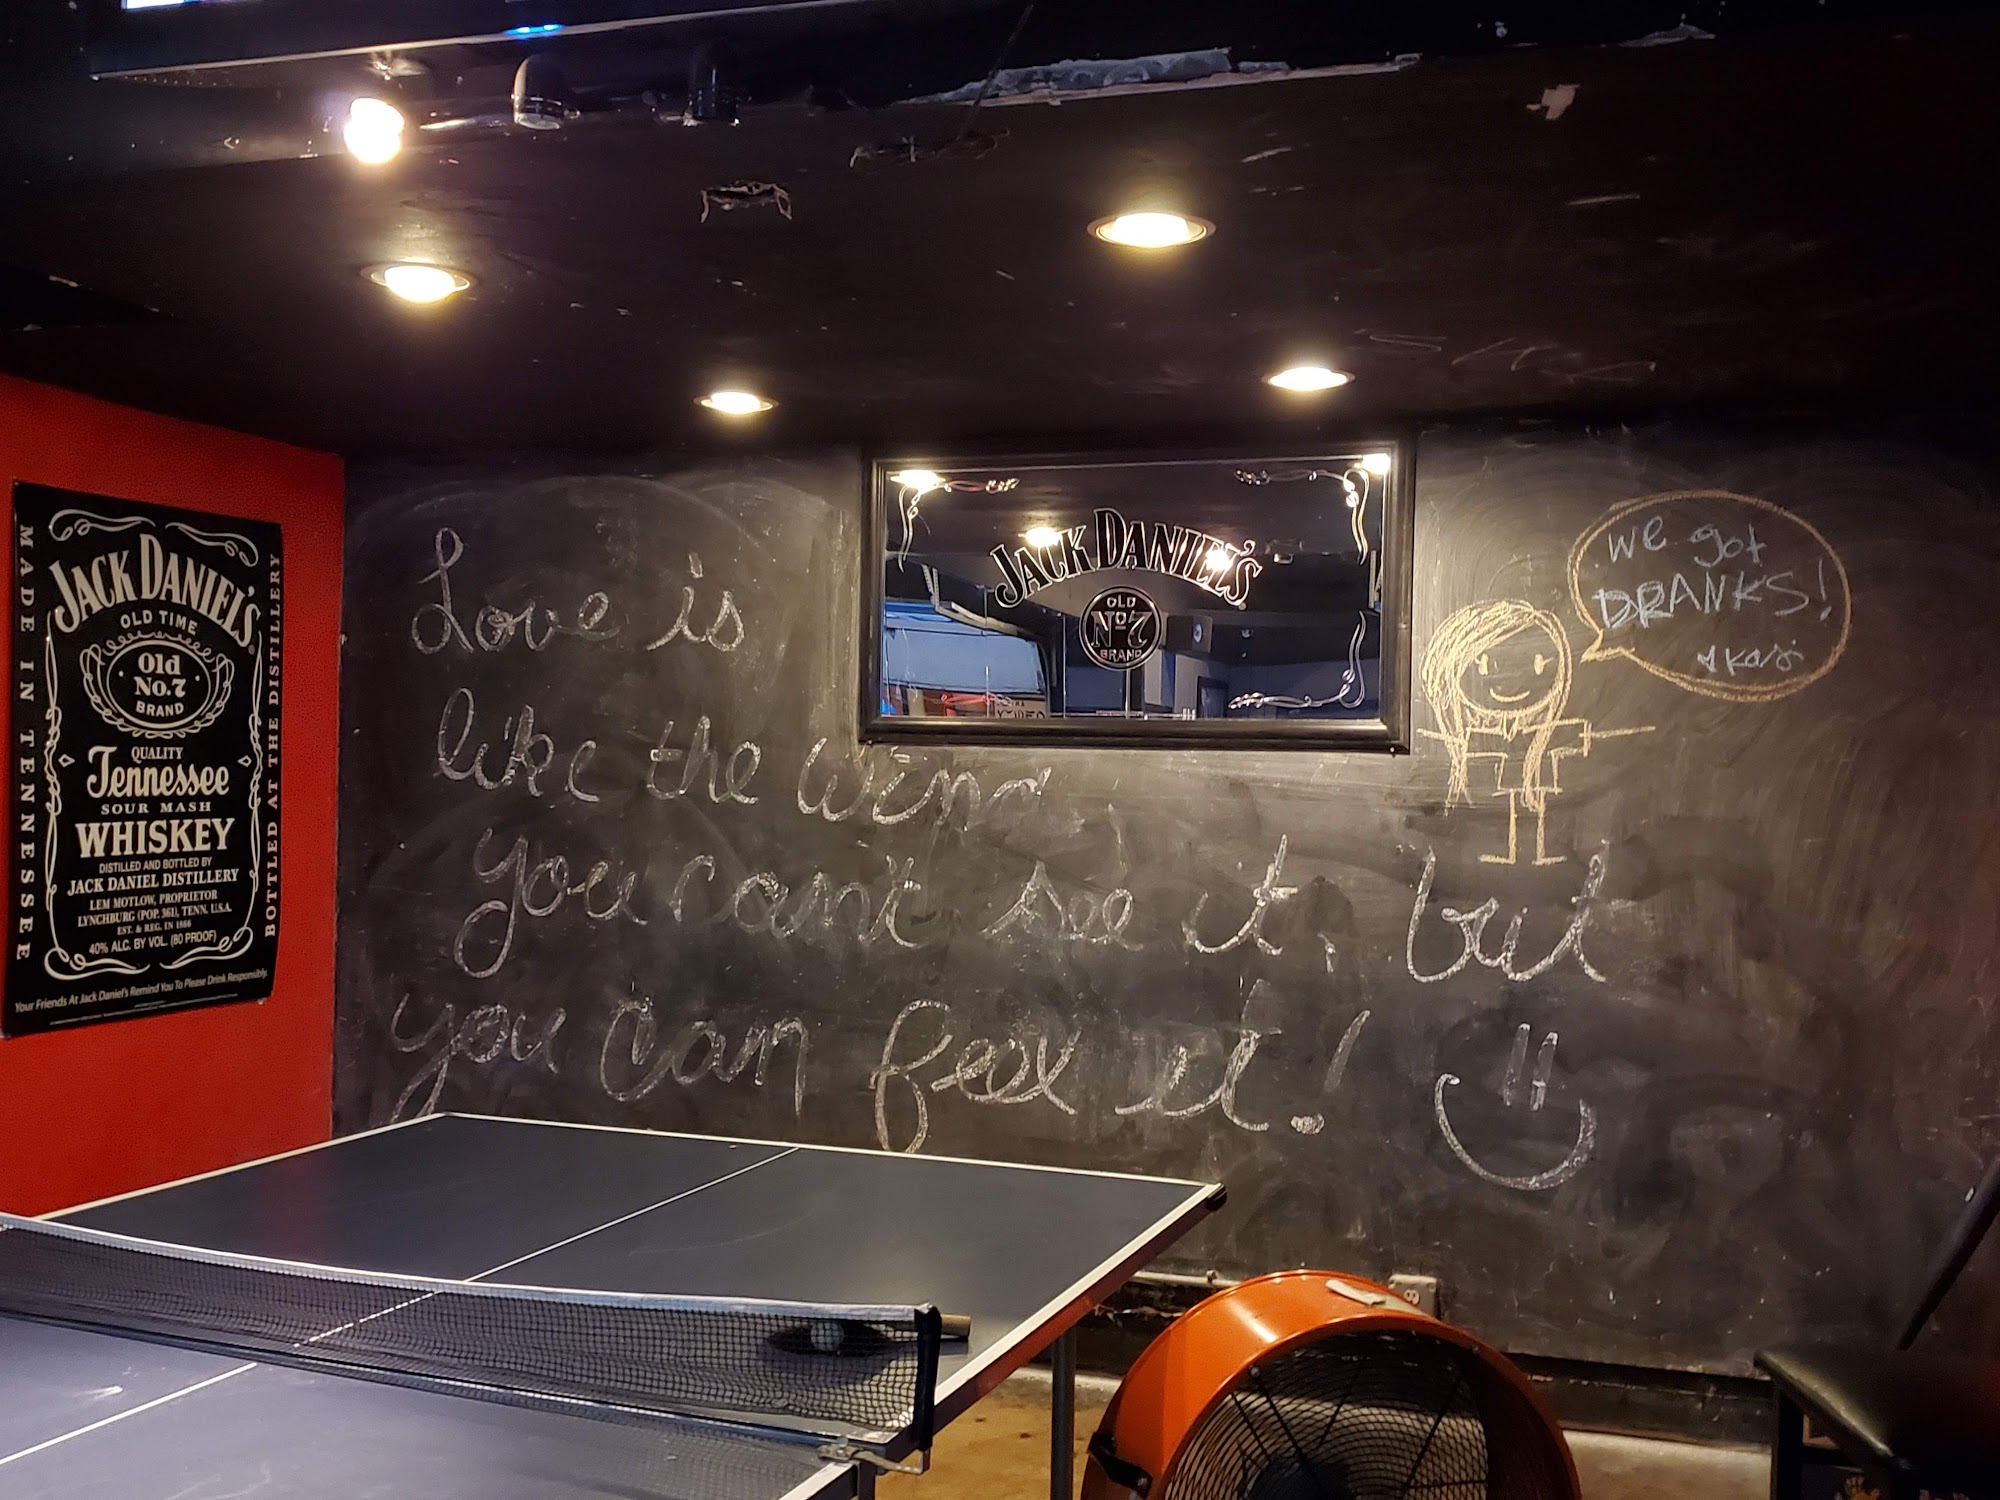 MADE IN TENNESSEE
JACK DANIEL'S
OLD TIME
Old
No.7
BRAND
QUALITY
Tennessee
SOUR MASH
WHISKEY
DISTILLED AND BOTTLED BY
JACK DANIEL DISTILLERY
LEM MOTLOW, PROPRIETOR
LYNCHBURG (POP. 361), TENN. U.S.A.
EST. & REG. IN 1866
40% ALC. BY VOL. (80 PROOF)
BOTTLED AT THE DISTILLERY
Your Friends At Jack Daniel's Remind You To Please Drink Responsibly.
Love is
like the wind
you can't see it, but
you can feel it!
JACK DANIEL'S
OLD
No. 7
BRAND
we got
DRANKS!